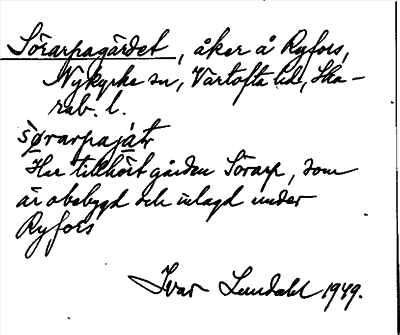 Sörarpagärdet, åker å Ryfors,
Nykyrke sn, Vartofta hd, Ska-
rab. l.
sørarpajátɩ
Har tillhört gården Sörarp, som
är obebyggd och inlagd under
Ryfors
Ivar Lundahl 1949.